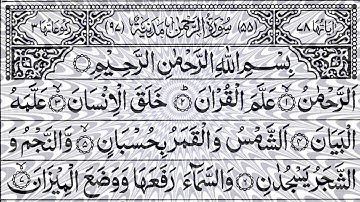 اٰیَاتُهَا ۷۸ (۵۵) سُوْرَةُ الرَّحْمٰنِ مَدَنِيَّةٌ (۹۷) رُكُوْعَاتُهَا ۳
بِسْمِ اللهِ الرَّحْمٰنِ الرَّحِيْمِ
اَلرَّحْمٰنُ ۱ عَلَّمَ الْقُرْاٰنَ ۲ خَلَقَ الْاِنْسَانَ ۳ عَلَّمَهُ
الْبَيَانَ ۴ اَلشَّمْسُ وَالْقَمَرُ بِحُسْبَانٍ ۵ وَّالنَّجْمُ وَ
الشَّجَرُ يَسْجُدٰنِ ۶ وَالسَّمَآءَ رَفَعَهَا وَوَضَعَ الْمِيْزَانَ ۷